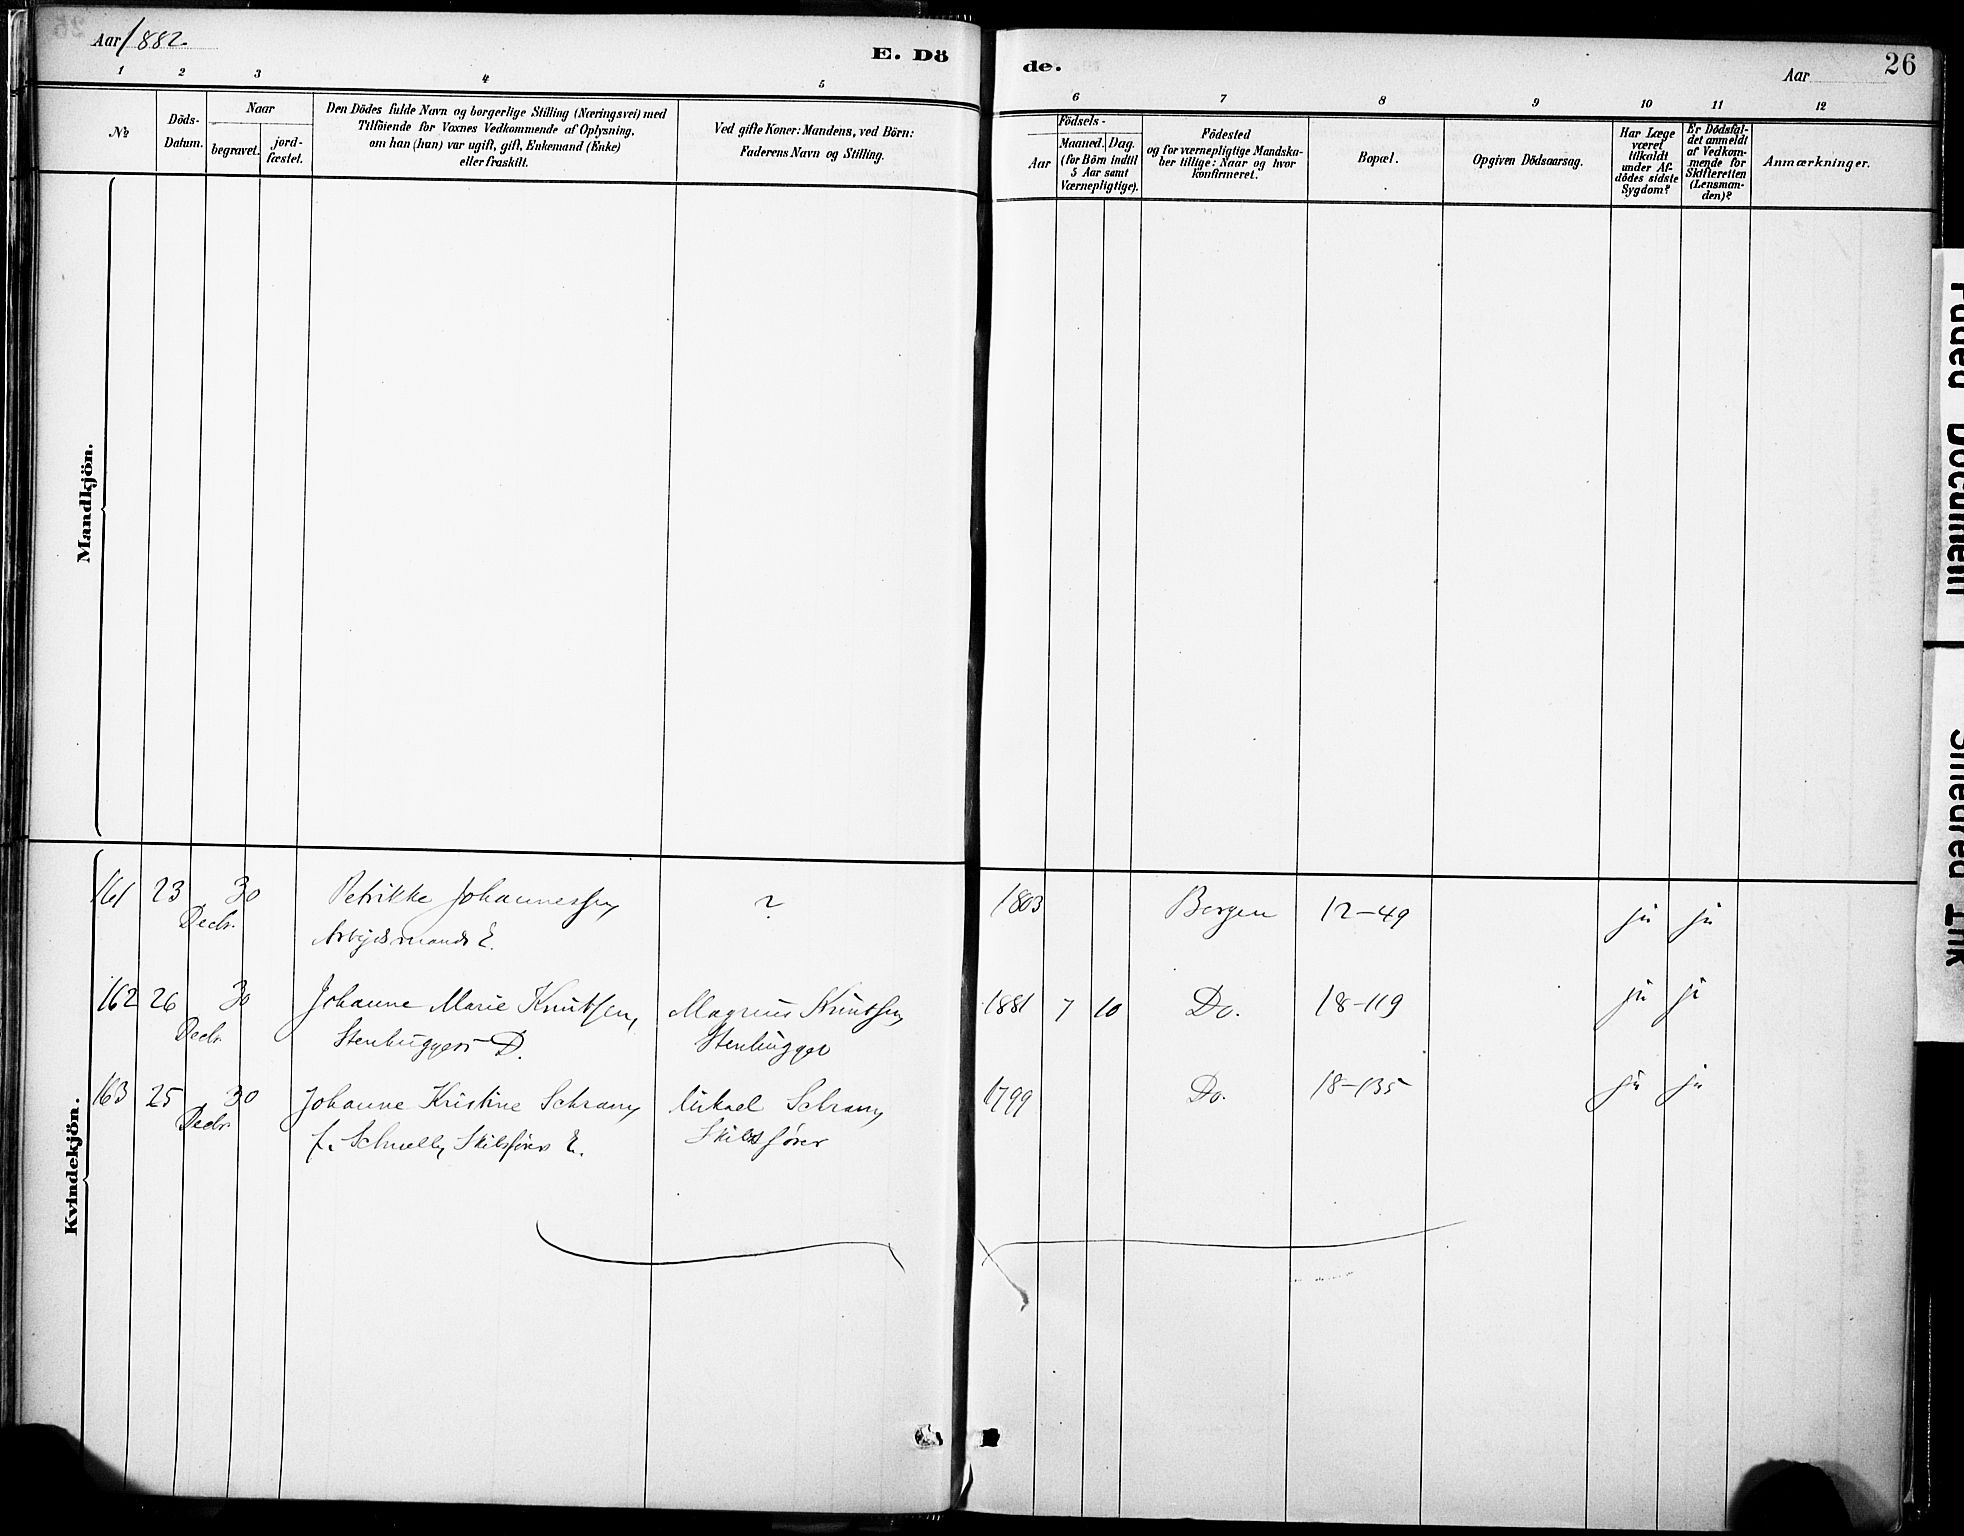 Aar 1882
E. Dö
de.
Aar
26
1 2 3 4 5 6 7 8 9 10 11 12
№
Döds-
Datum.
Naar
begravet.
jord-
fæstet.
Den Dödes fulde Navn og borgerlige Stilling (Næringsvei) med
Tilföiende for Voxnes Vedkommende af Oplysning,
om han (hun) var ugift, gift, Enkemand (Enke)
eller fraskilt.
Ved gifte Koner: Mandens, ved Börn:
Faderens Navn og Stilling.
Födsels-
Aar
Maaned.
Dag.
(for Börn indtil
5 Aar samt
Værnepligtige).
Födested
og for værnepligtige Mandska-
ber tillige: Naar og hvor
konfirmeret.
Bopæl.
Opgiven Dödsaarsag.
Har Læge
været
tilkaldt
under Af-
dödes sidste
Sygdom?
Er Dödsfal-
det anmeldt
af Vedkom-
mende for
Skifteretten
(Lensman-
den)?
Anmærkninger.
Mandkjön.
Kvindekjön.
161 23 30 Petrikke Johannessen ? 1803 Bergen 12-49 ja ja
Decbr. Arbejdsmands E.
162 26 30 Johanne Marie Knutsen, Magnus Knutsen 1881 7 10 Do. 18-119 ja ja
Decbr. Stenhuggers D. Stenhugger
163 25 30 Johanne Kristine Schram, Mikael Schram, 1799 Do. 18-135 ja ja
Decbr. f. Schnell, Skibsførers E. Skibsfører
Faded Document
Smeared Ink